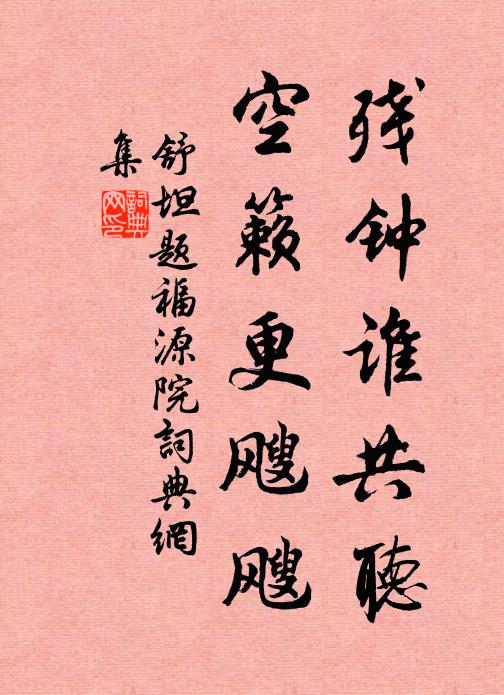 残钟谁共聴
空籁更飕飕
舒坦题福源院詞典網
集
詞典
网印